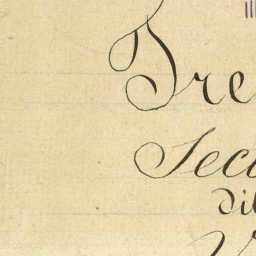 Tre
Sec
dil
V